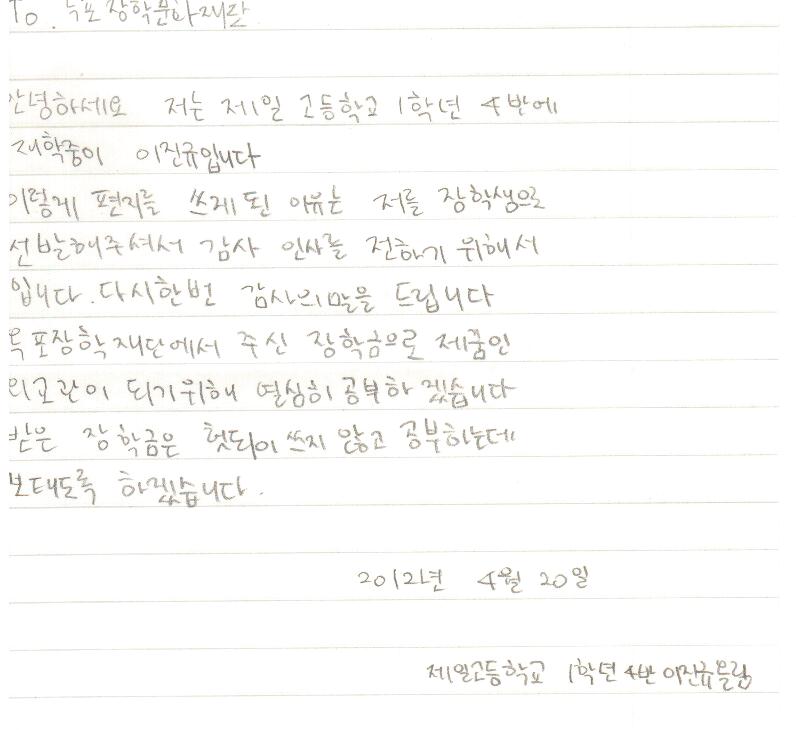 To. 목포장학문화재단
안녕하세요 저는 제1일 고등학교 1학년 4반에
재학중이 이진규입니다
이렇게 편지를 쓰게 된 이유는 저를 장학생으로
선발해주셔서 감사 인사를 전하기 위해서
입니다. 다시한번 감사의말을 드립니다
목포장학재단에서 주신 장학금으로 제꿈인
외교관이 되기위해 열심히 공부하겠습니다
받은 장학금은 헛되이 쓰지 않고 공부하는데
보태도록 하겠습니다.
2012년 4월 20일
제일고등학교 1학년 4반 이진규올림